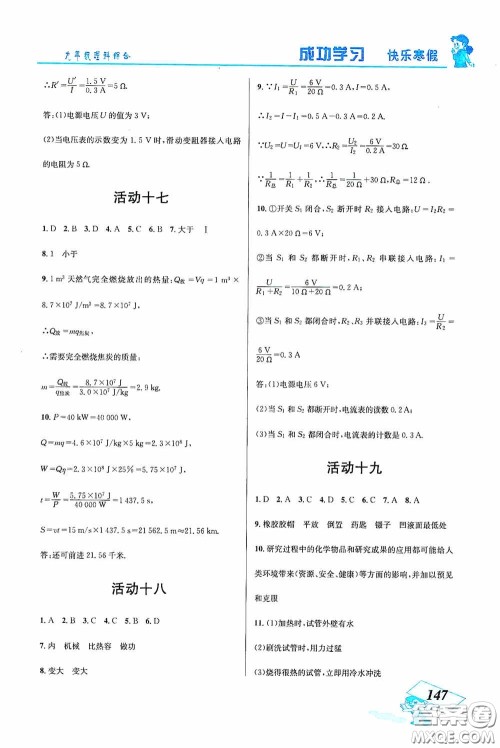 九年级理科综合
成功学习 快乐寒假
∴R′=U′/I=1.5 V/0.3 A=5 Ω.
答:(1)电源电压 U 的值为 3 V;
(2)当电压表的示数变为 1.5 V 时,滑动变阻器接入电路
的电阻为 5 Ω.
活动十七
1. D 2. B 3. D 4. A 5. C 6. B 7. 大于 Ⅰ
8. 1 小于
9. 1 m³ 天然气完全燃烧放出的热量:Q放=Vq=1 m³×
8.7×10⁷ J/m³=8.7×10⁷ J
∴Q放=mq焦炭
∴需要完全燃烧焦炭的质量:
m=Q放/q焦炭=8.7×10⁷ J/3.0×10⁷ J/kg=2.9 kg.
10. P=40 kW=40 000 W
Q=mq=4.6×10⁷ J/kg×5 kg=2.3×10⁸ J
W=Qη=2.3×10⁸ J×25%=5.75×10⁷ J.
t=W/P=5.75×10⁷ J/40 000 W=1 437.5 s,
S=υt=15 m/s×1 437.5 s=21 562.5 m≈21.56 km.
答:还可前进 21.56 千米.
活动十八
1. A 2. B 3. C 4. B 5. B 6. D
7. 内 机械 比热容 做功
8. 变大 变大
9. ∵I₁=U/R₁=6 V/20 Ω=0.3 A,I=0.5 A,
I₂=I-I₁=0.5 A-0.3 A=0.2 A.
∴U₂=U=U₁=6 V,∴R₂=U₂/I₂=6 V/0.2 A=30 Ω.
∵1/R总=1/R₁+1/R₂=1/20 Ω+1/30 Ω,
∴1/R总=1/12 Ω,∴R总=12 Ω.
10. ①开关 S₁ 闭合,S₂ 断开时 R₂ 接入电路:U=I₂R₂=
0.3 A×20 Ω=6 V;
②当 S₁ 和 S₂ 都断开时,R₁、R₂ 串联接入电路:I=
U/R₁+R₂=6 V/10 Ω+20 Ω=0.2 A;
③当 S₁ 和 S₂ 都闭合时,R₂ 并联接入电路:I₂=U/R₂=
6 V/20 Ω=0.3 A
答:(1)电源电压 6 V;
(2)当 S₁ 和 S₂ 都断开时,电流表的读数 0.2 A;
(3)当 S₁ 和 S₂ 都闭合时,电流表的计数是 0.3 A.
活动十九
1. D 2. A 3. C 4. D 5. B 6. A 7. A 8. A
9. 橡胶胶帽 平放 倒置 药匙 镊子 凹液面最低处
10. 研究过程中的化学物品和研究成果的应用都可能给人
类环境带来(资源、安全、健康)等方面的影响,并加以预见
和克服
11. (1)加热时,试管外壁有水
(2)刷洗试管时,用力过猛
(3)烧得很热的试管,立即用冷水冲洗
147